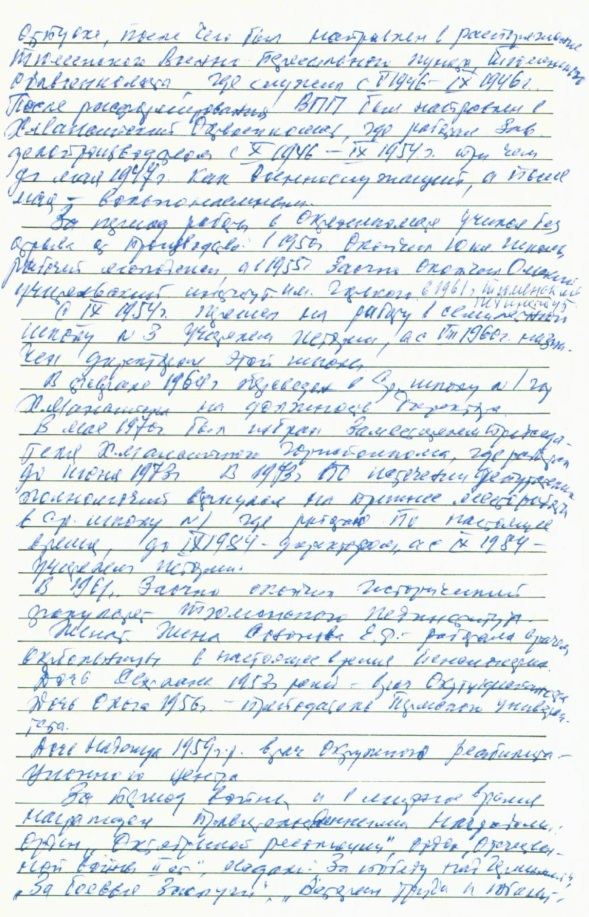 отпуске, после чего был направлен в распоряжение
Тюменского Военно-Пересыльного пункта Тюменского
облвоенкомата где служил с II 1946 – IX 1946 г.
После расформирования ВПП был направлен в
Х.Мансийский Окрвоенкомат, где работал Зав
делопроизводством с X 1946 – IX 1954 г. при чем
до мая 1947 г. как военнослужащий, а после
мая – вольнонаемным.
За период работы в Окрвоенкомате учился без
отрыва от производства. В 1950 г. Окончил школу
рабочей молодежи, а в 1955 г. Заочно окончил Омский
учительский институт им. Горького в 1961 г. Тюменский
С IX 1954 г. перешел на работу в семилетнюю
школу N 3 учителем истории, а с VIII 1960 г. назна-
чен директором этой школы.
В феврале 1964 г переведен в Ср. школу N 1 гор
Х.Мансийска на должность директора.
В мае 1970 г был избран Заместителем Председа-
теля Х.Мансийского Горисполкома, где работал
до июня 1973 г. В 1973 г по истечении депутатских
полномочий вернулся на прежнее место работы
в Ср. школу N 1 где работаю по настоящее
время, до IX 1984 – директором, а с IX 1984 –
учителем истории.
В 1961 г. Заочно окончил исторический
факультет Тюменского пединститута.
Женат. Жена Е.Ф. – работала врачом
окрбольницы в настоящее время пенсионерка.
Дочь 1953 г рожд – врач
Дочь Ольга 1956 г – преподаватель Пермского универси-
тета.
Дочь Надежда 1959 г.р. врач окружного реабилита-
ционного центра
За период войны и в мирное время
награжден Правительственными наградами:
орден „Октябрьской революции“, орден Отечествен-
ной войны II ст“, медали: За победу над Германией“
„За боевые Заслуги“, „Ветеран Труда и юбилей-